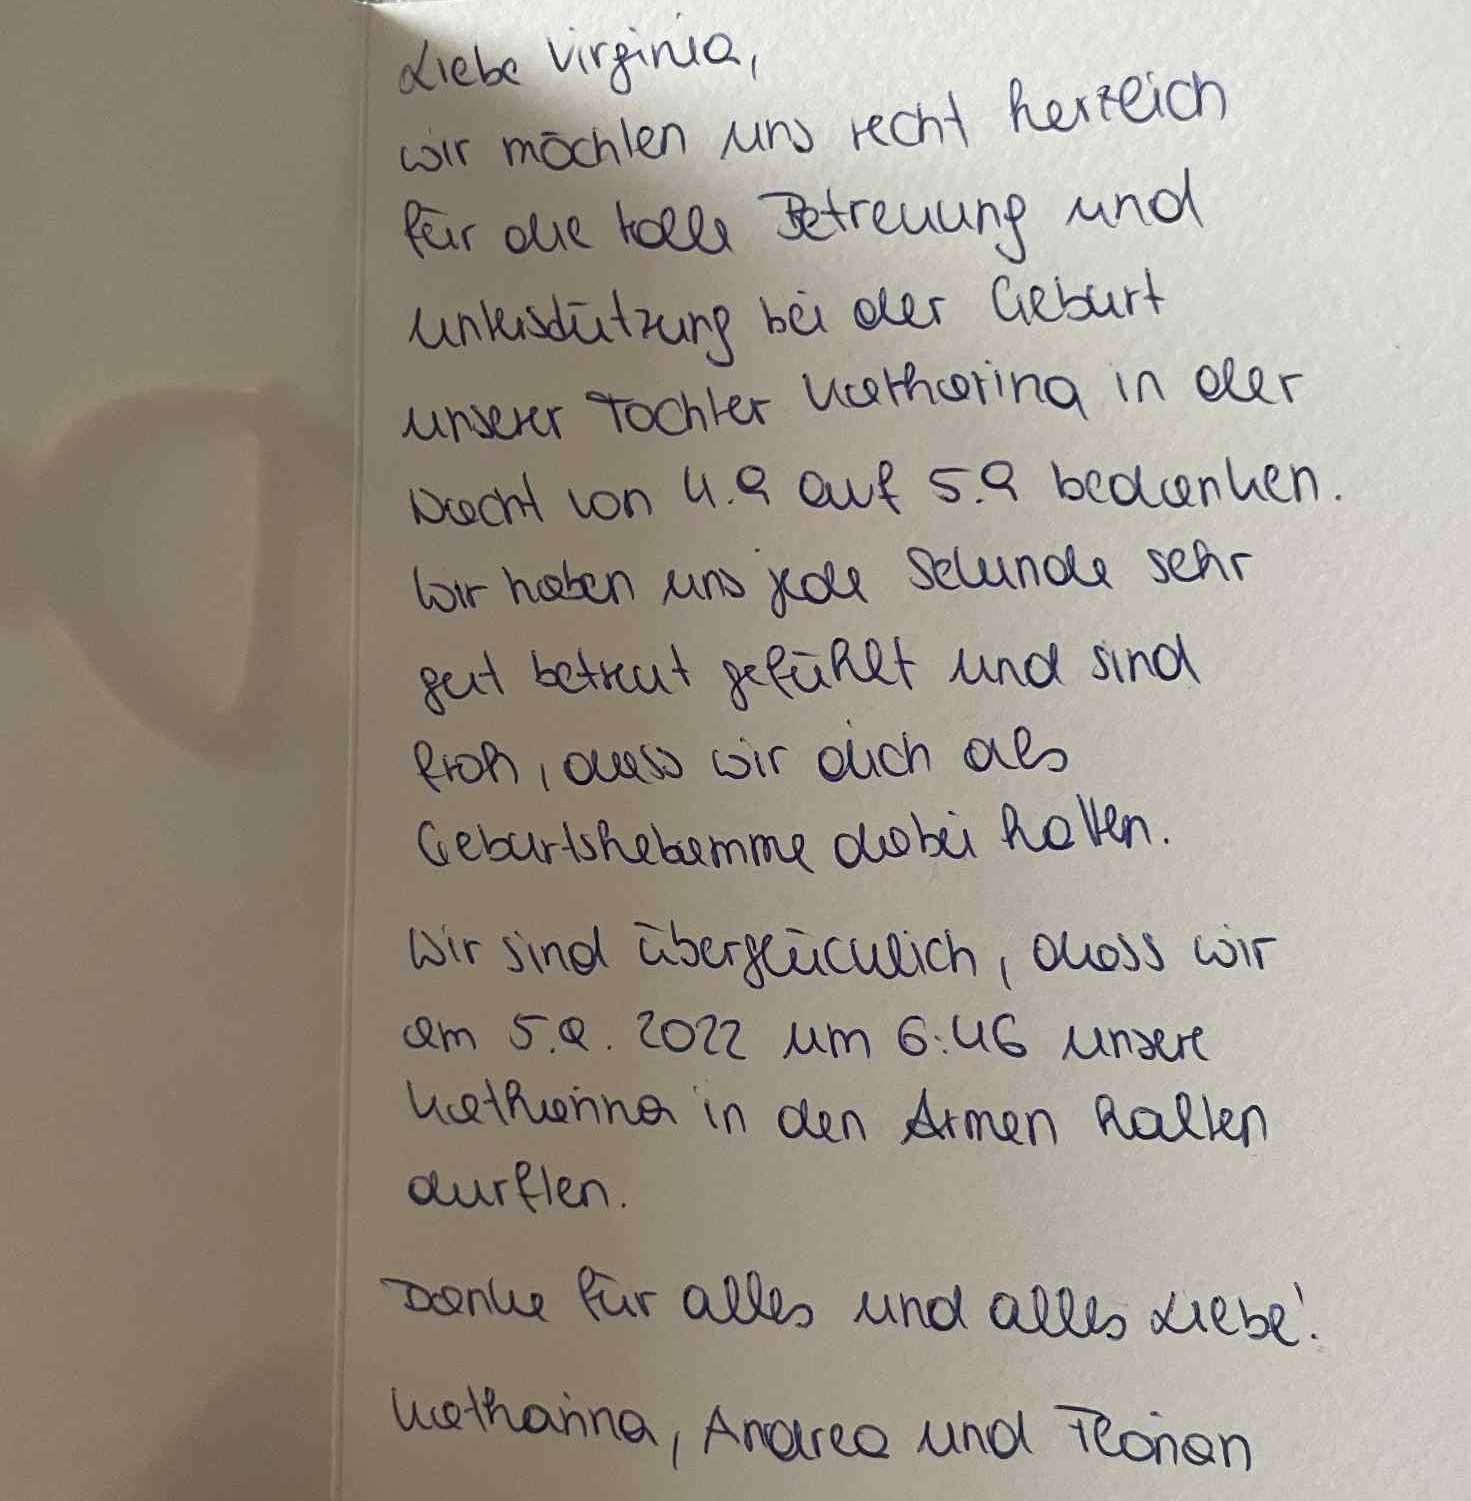 Liebe Virginia,
wir möchten uns recht herzlich
für die tolle Betreuung und
Unterstützung bei der Geburt
unserer Tochter Katharina in der
Nacht von 4.9 auf 5.9 bedanken.
Wir haben uns jede Sekunde sehr
gut betreut gefühlt und sind
froh, dass wir dich als
Geburtshebamme dabei hatten.
Wir sind überglücklich, dass wir
am 5.9. 2022 um 6:46 unsere
Katharina in den Armen halten
durften.
Danke für alles und alles Liebe!
Katharina, Andrea und Florian